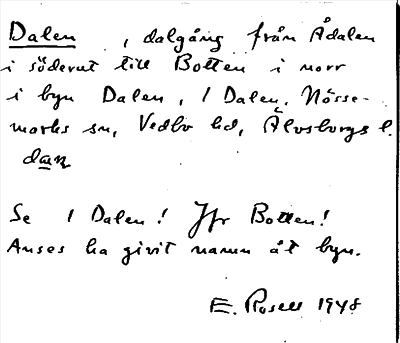 Dalen , dalgång från Ådalen
i söderut till Botten i norr
i byn Dalen, 1 Dalen, Nösse-
marks sn, Vedbo hd, Älvsborgs l.
dan
Se 1 Dalen! Jfr Botten!
Anses ha givit namn åt byn.
E. Rosell 1948